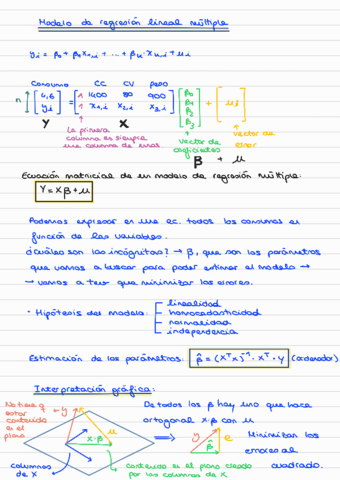 Modelo de regresión lineal múltiple
yi = β0 + β1 x1,i + ... + βk · xk,i + ui
Consumo CC CV peso
n [ 4,6 yi ] = [ 1 1400 80 900 1 x1,i x2,i x3,i ] [ β0 β1 β2 β3 ] + [ ui ]
Y X
La primera columna es siempre una columna de unos.
vector de coeficientes
vector de error
β + u
Ecuación matricial de un modelo de regresión múltiple:
Y = Xβ + u
Podemos expresar en una ec. todos los consumos en
función de las variables.
¿Cuáles son las incógnitas? → β, que son los parámetros
que vamos a buscar para poder estimar el modelo →
→ vamos a tener que minimizar los errores.
· Hipótesis del modelo:
linealidad
homocedasticidad
normalidad
independencia
Estimación de los parámetros: β̂ = (XᵀX)⁻¹ · Xᵀ · Y (ordenador)
Interpretación gráfica:
No tiene q
estar
contenido
en el
plano
y
u
X·β
columnas
de X
contenido en el plano creado
por las columnas de X
De todos los β hay uno que hace
ortogonal X·β con u
y e
β̂
Minimizar los
errores al
cuadrado.